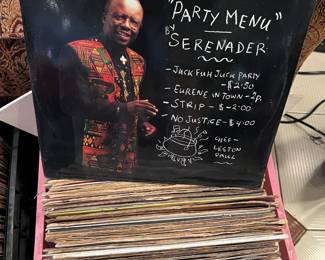 "PARTY MENU"
BY
SERENADER
- JUCK FUH JUCK PARTY
- $2.50
- EUREME IN TOWN - 2p.
- STRIP - $2.00
- NO JUSTICE - $4.00
CHEF -
LESTON
PAUL